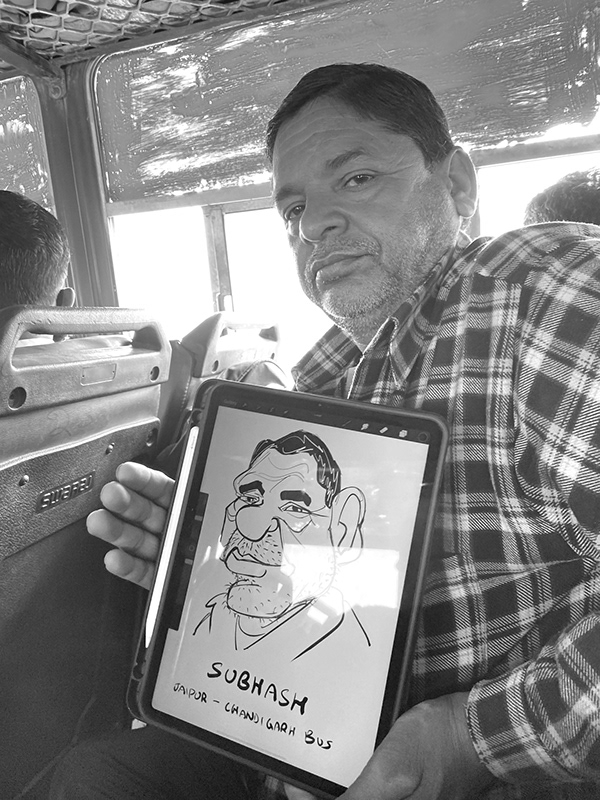 SUBHASH
JAIPUR - CHANDIGARH BUS